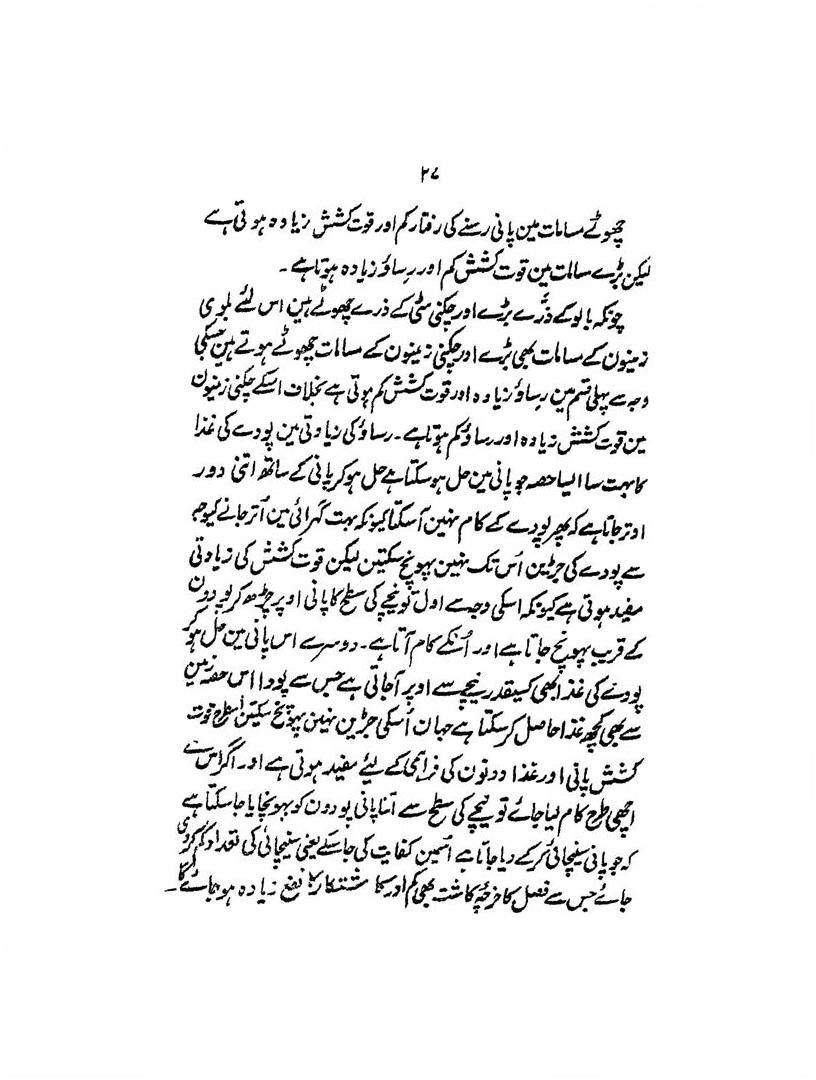 ۲۷
چھوٹے مسامات مین پانی رسنے کی رفتار کم اور قوت کشش زیادہ ہوتی ہے
لیکن بڑے مسامات مین قوت کشش کم اور رساؤ زیادہ ہوتا ہے ۔
چونکہ بالو کے ذرّے بڑے اور چکنی مٹی کے ذرے چھوٹے ہین اس لئے بلوی
زمینون کے مسامات بھی بڑے اور چکنی زمینون کے مسامات چھوٹے ہوتے ہین جسکی
وجہ سے پہلی قسم مین رساؤ زیادہ اور قوت کشش کم ہوتی ہے بخلاف اسکے چکنی زمینون
مین قوت کشش زیادہ اور رساؤ کم ہوتا ہے ۔ رساؤ کی زیادتی مین پودے کی غذا
کا بہت سا ایسا حصہ جو پانی مین حل ہو سکتا ہے حل ہو کر پانی کے ساتھ اتنی دور
اوتر جاتا ہے کہ پھر پودے کے کام نہین آسکتا کیونکہ بہت گہرائی مین اُتر جانے کیوجہ
سے پودے کی جڑین اُس تک نہین پہونچ سکتین لیکن قوت کشش کی زیادتی
مفید ہوتی ہے کیونکہ اسکی وجہ سے اول تو نیچے کی سطح کا پانی اوپر چڑھ کر پودون
کے قریب پہونچ جاتا ہے اور اُنکے کام آتا ہے ۔ دوسرے اس پانی مین حل ہو کر
پودے کی غذا بھی کسیقدر نیچے سے اوپر آجاتی ہے جس سے پودا اس حصہ زمین
سے بھی کچھ غذا حاصل کر سکتا ہے جہان اُسکی جڑین نہین پہونچ سکتین اسطرح قوت
کشش پانی اور غذا دونون کی فراہمی کے لیئے مفید ہوتی ہے اور اگر اس سے
اچھی طرح کام لیا جائے تو نیچے کی سطح سے اتنا پانی پودون کو پہونچایا جا سکتا ہے
کہ جو پانی سینچائی کر کے دیا جاتا ہے اسمین کفایت کی جا سکے یعنی سینچائی کی تعداد کم کر دی
جائے جس سے فصل کا خرچہ کاشت بھی کم اور کاشتکار کا نفع زیادہ ہو جائے گا ۔